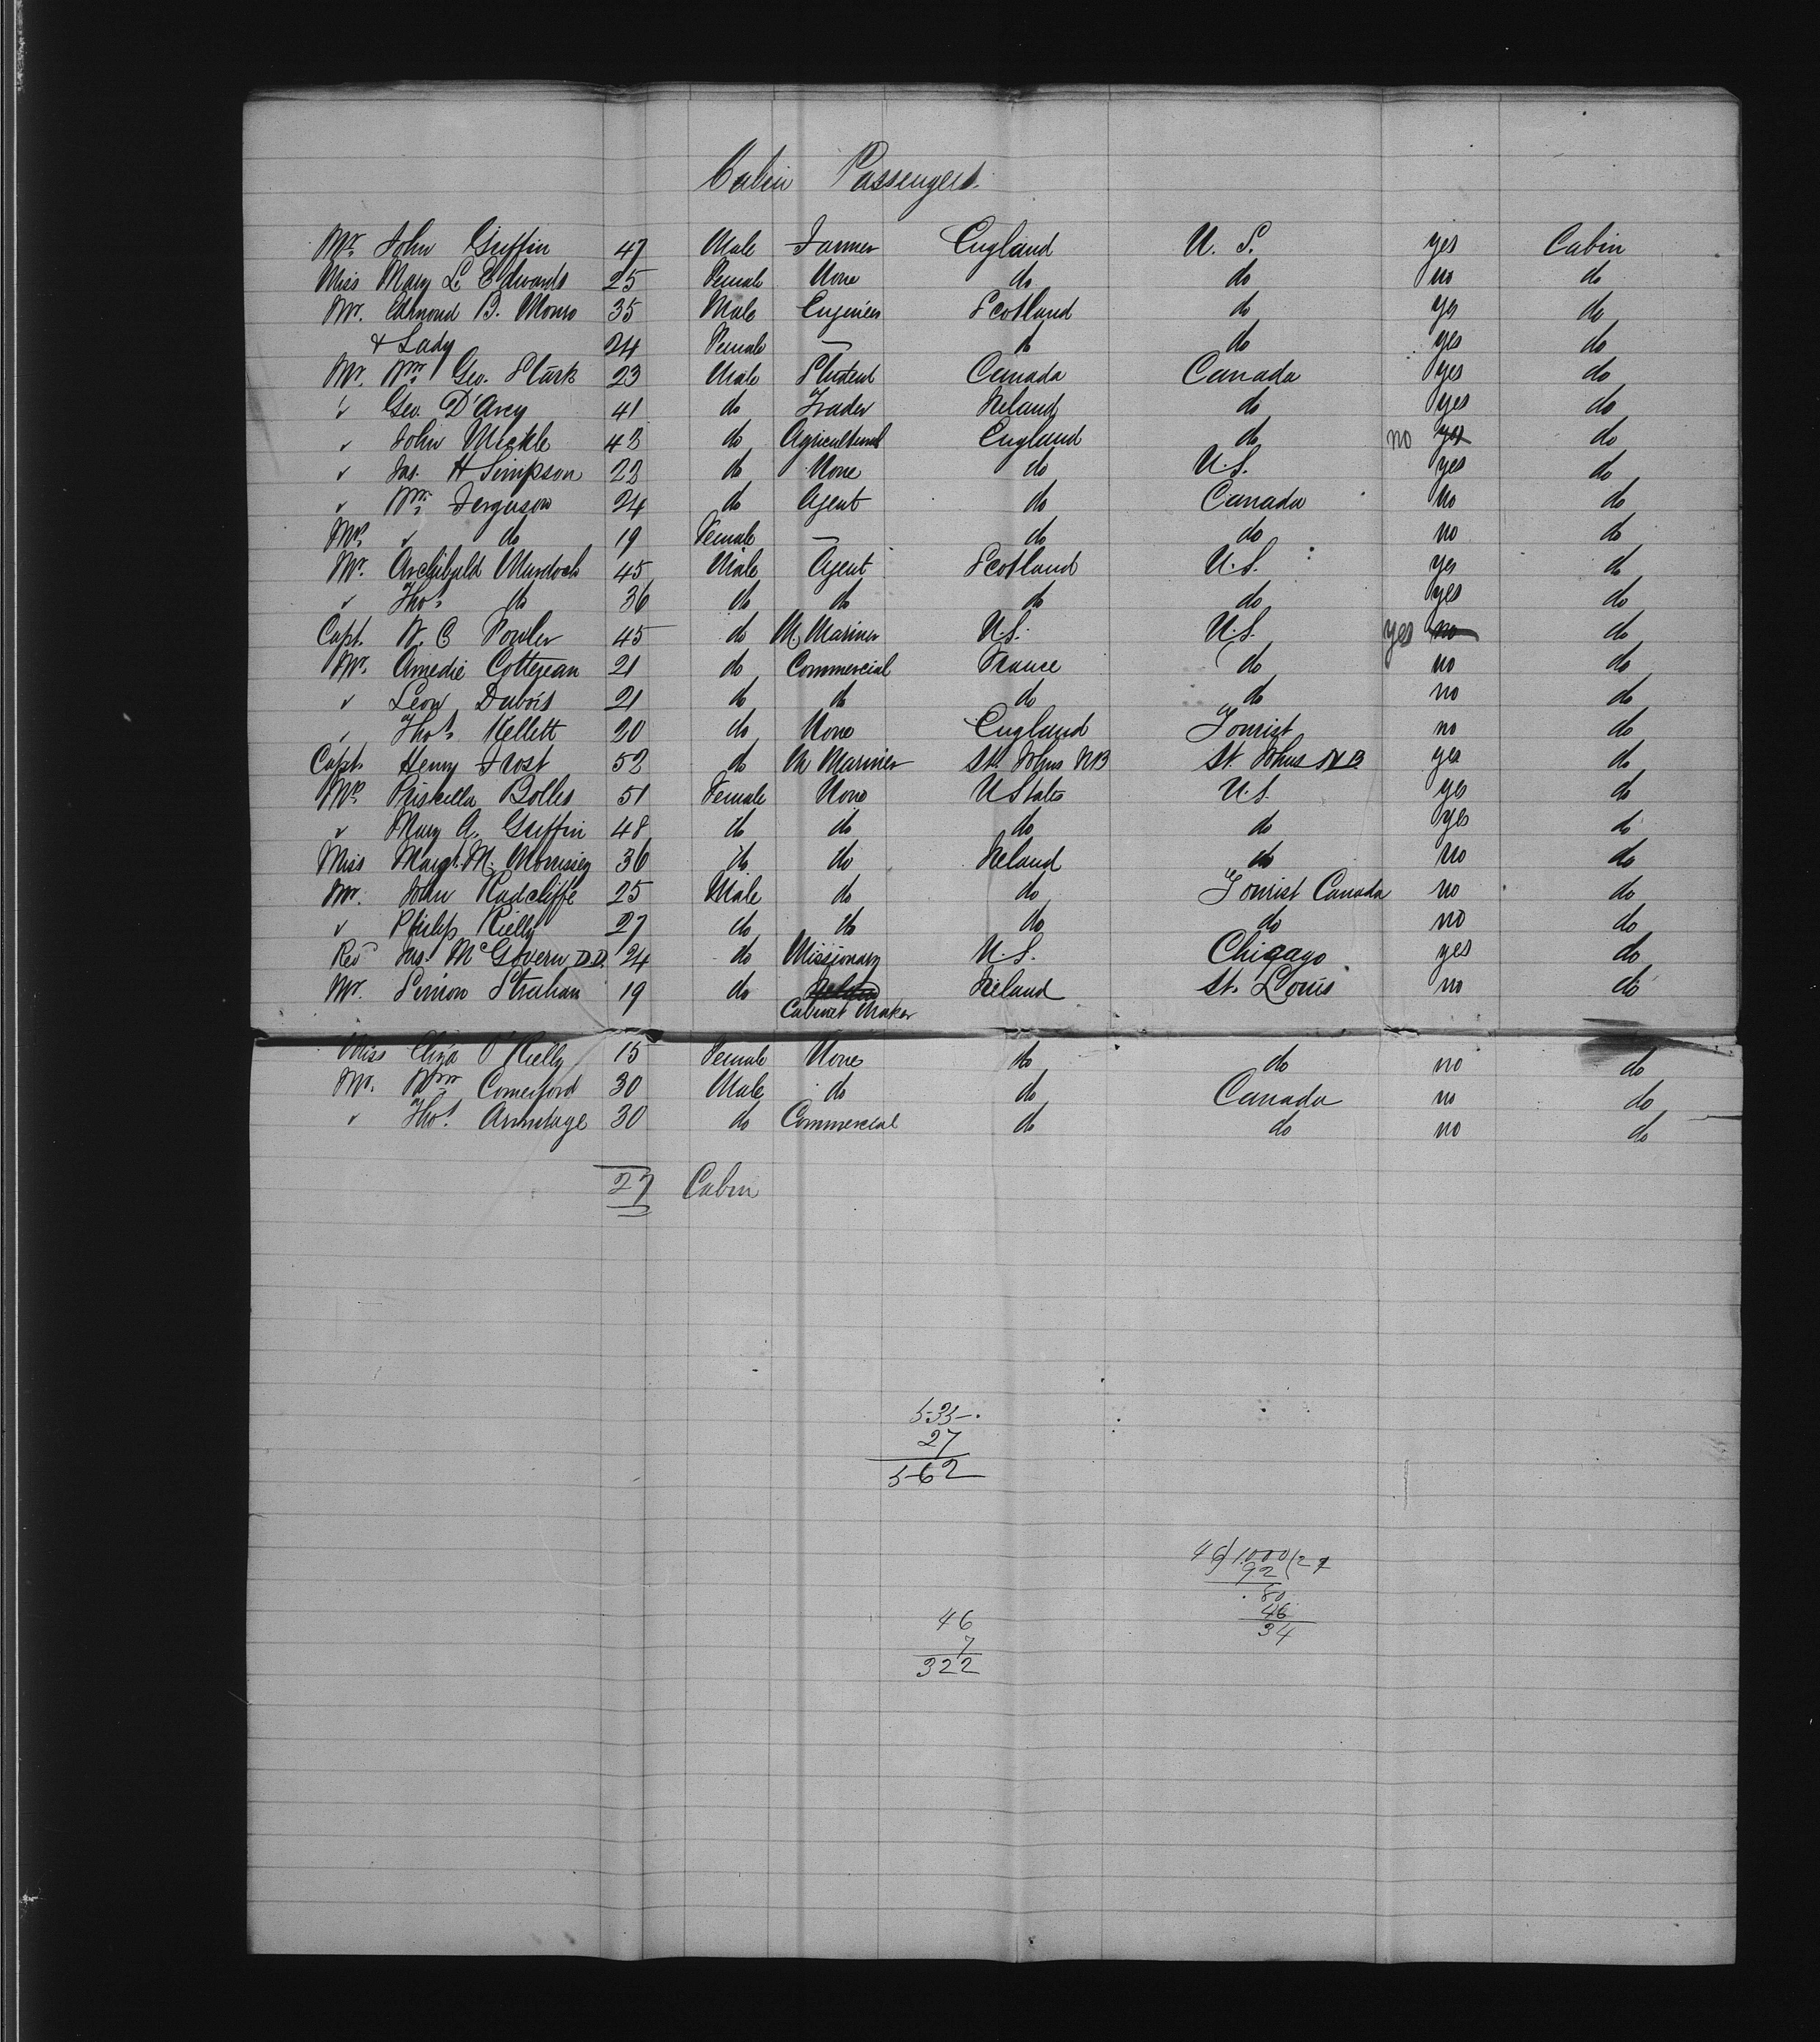 Cabin Passengers
Mr. John Griffin 47 Male Farmer England U. S. yes Cabin
Miss Mary L. Edwards 25 Female None do do no do
Mr. Edmond B. Monro 35 Male Engineer Scotland do yes do
& Lady 24 Female — do do yes do
Mr. Wm. Geo. Stark 23 Male Student Canada Canada yes do
" Geo. D'Arcy 41 do Trader Ireland do yes do
" John Mickle 43 do Agricultural England do no yes do
" Jas. H Simpson 22 do None do U.S. yes do
" Wm. Ferguson 24 do Agent do Canada no do
Mrs. " do 19 Female — do do no do
Mr. Archibald Murdoch 45 Male Agent Scotland U.S. yes do
" Thos. do 36 do do do do yes do
Capt. W. C 45 do M. Mariner U.S. U.S. yes no do
Mr. Amedie Cottejean 21 do Commercial France do no do
" Leon Dubois 21 do do do do no do
" Thos. Kellett 20 do None England Tourist no do
Capt. Henry Frost 52 do M Mariner St. Johns NB St. Johns NB yes do
Mrs. Priskella Bolles 51 Female None U States U.S. yes do
" Mary A. Griffin 48 do do do do yes do
Miss Margt. M. Morrisey 36 do do Ireland do no do
Mr. John Radcliffe 25 Male do do Tourist Canada no do
" Philip Rielly 27 do do do do no do
Revd Jas. McGovern D.D. 24 do Missionary U.S. Chigago yes do
Mr. Simon Strahan 19 do Ireland St. Louis no do
Cabinet Maker
Miss Eliza O'Rielly 15 Female None do do no do
Mr. Wm Comerford 30 Male do do Canada no do
" Thos. Armitage 30 do Commercial do do no do
27 Cabin
535
27
562
46)1000(21
92
80
46
34
46
7
322